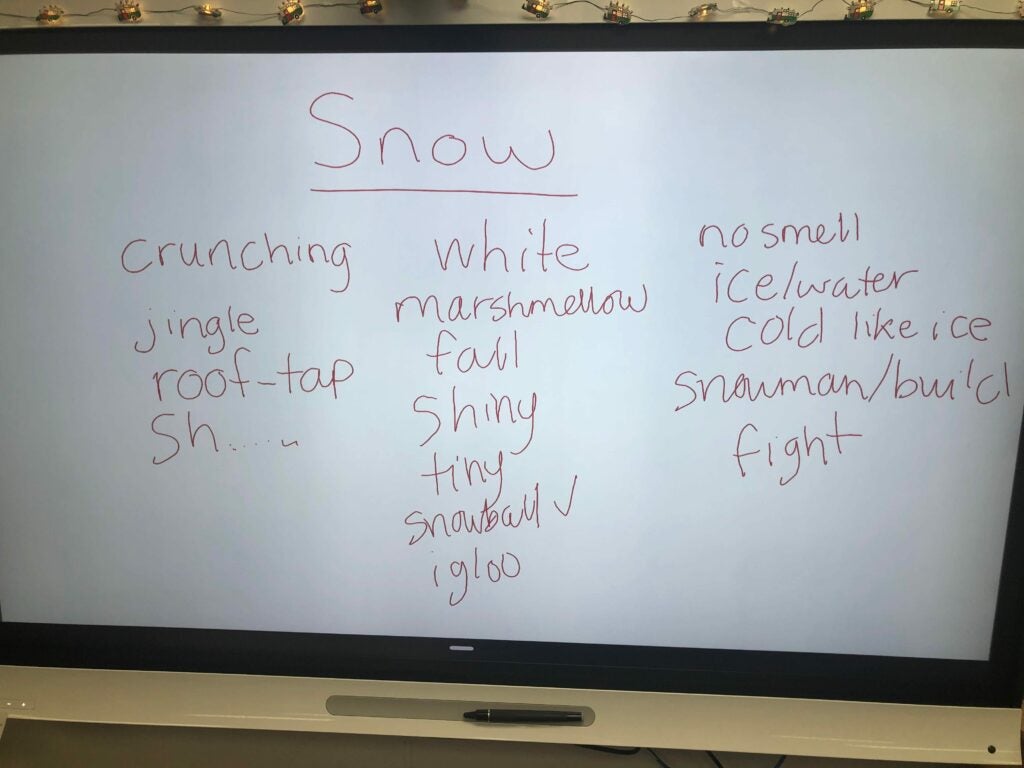 Snow
crunching
jingle
roof-tap
Sh.....
white
marshmellow
fall
Shiny
tiny
snowball ✓
igloo
no smell
ice/water
cold like ice
snowman/build
fight